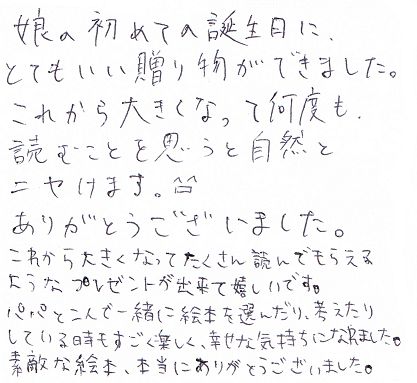 娘の初めての誕生日に、
とてもいい贈り物ができました。
これから大きくなって何度も、
読むことを思うと自然と
ニヤけます。^^
ありがとうございました。
これから大きくなってたくさん読んでもらえる
ようなプレゼントが出来て嬉しいです。
パパと二人で一緒に絵本を選んだり、考えたり
している時もすごく楽しく、幸せな気持ちになれました。
素敵な絵本、本当にありがとうございました。